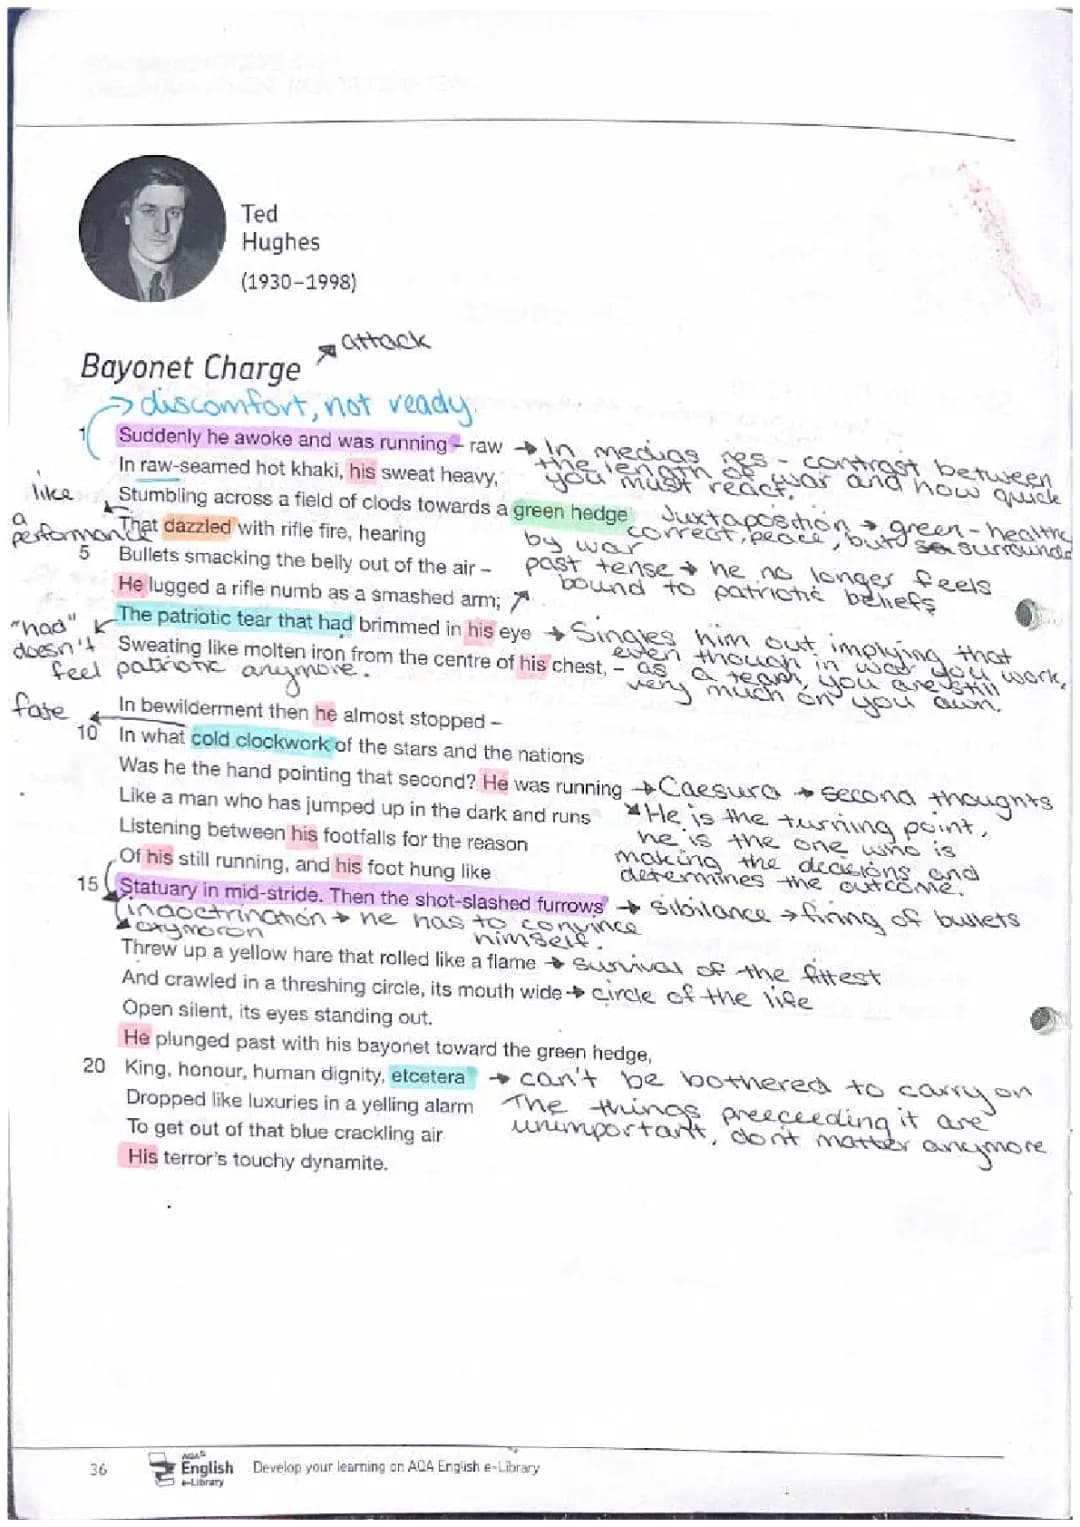 Ted
Hughes
(1930–1998)
attack
Bayonet Charge
discomfort, not ready.
1 Suddenly he awoke and was running – raw → In medias res - contrast between
the length of war and how quick
you must react.
In raw-seamed hot khaki, his sweat heavy,
Stumbling across a field of clods towards a green hedge Juxtaposition → green - health
correct, peace, but surrounde
by war
like
a
performance
That dazzled with rifle fire, hearing
5 Bullets smacking the belly out of the air –
past tense → he no longer feels
bound to patriotic beliefs
He lugged a rifle numb as a smashed arm;
The patriotic tear that had brimmed in his eye → Singles him out implying that
even though in war you work,
as a team, you are still
very much on you own.
Sweating like molten iron from the centre of his chest, –
"had"
doesn't
feel patriotic anymore.
In bewilderment then he almost stopped –
fate
10 In what cold clockwork of the stars and the nations
Was he the hand pointing that second? He was running → Caesura → second thoughts
He is the turning point,
he is the one who is
making the decisions and
determines the outcome.
Like a man who has jumped up in the dark and runs
Listening between his footfalls for the reason
Of his still running, and his foot hung like
15 Statuary in mid-stride. Then the shot-slashed furrows → sibilance → firing of bullets
indoctrination → he has to convince
himself.
oxymoron
Threw up a yellow hare that rolled like a flame → survival of the fittest
And crawled in a threshing circle, its mouth wide → circle of the life
Open silent, its eyes standing out.
He plunged past with his bayonet toward the green hedge,
20 King, honour, human dignity, etcetera → can't be bothered to carry on
The things preeceeding it are
unimportant, don't matter anymore
Dropped like luxuries in a yelling alarm
To get out of that blue crackling air
His terror's touchy dynamite.
36
AQA
English
e-Library
Develop your learning on AQA English e-Library